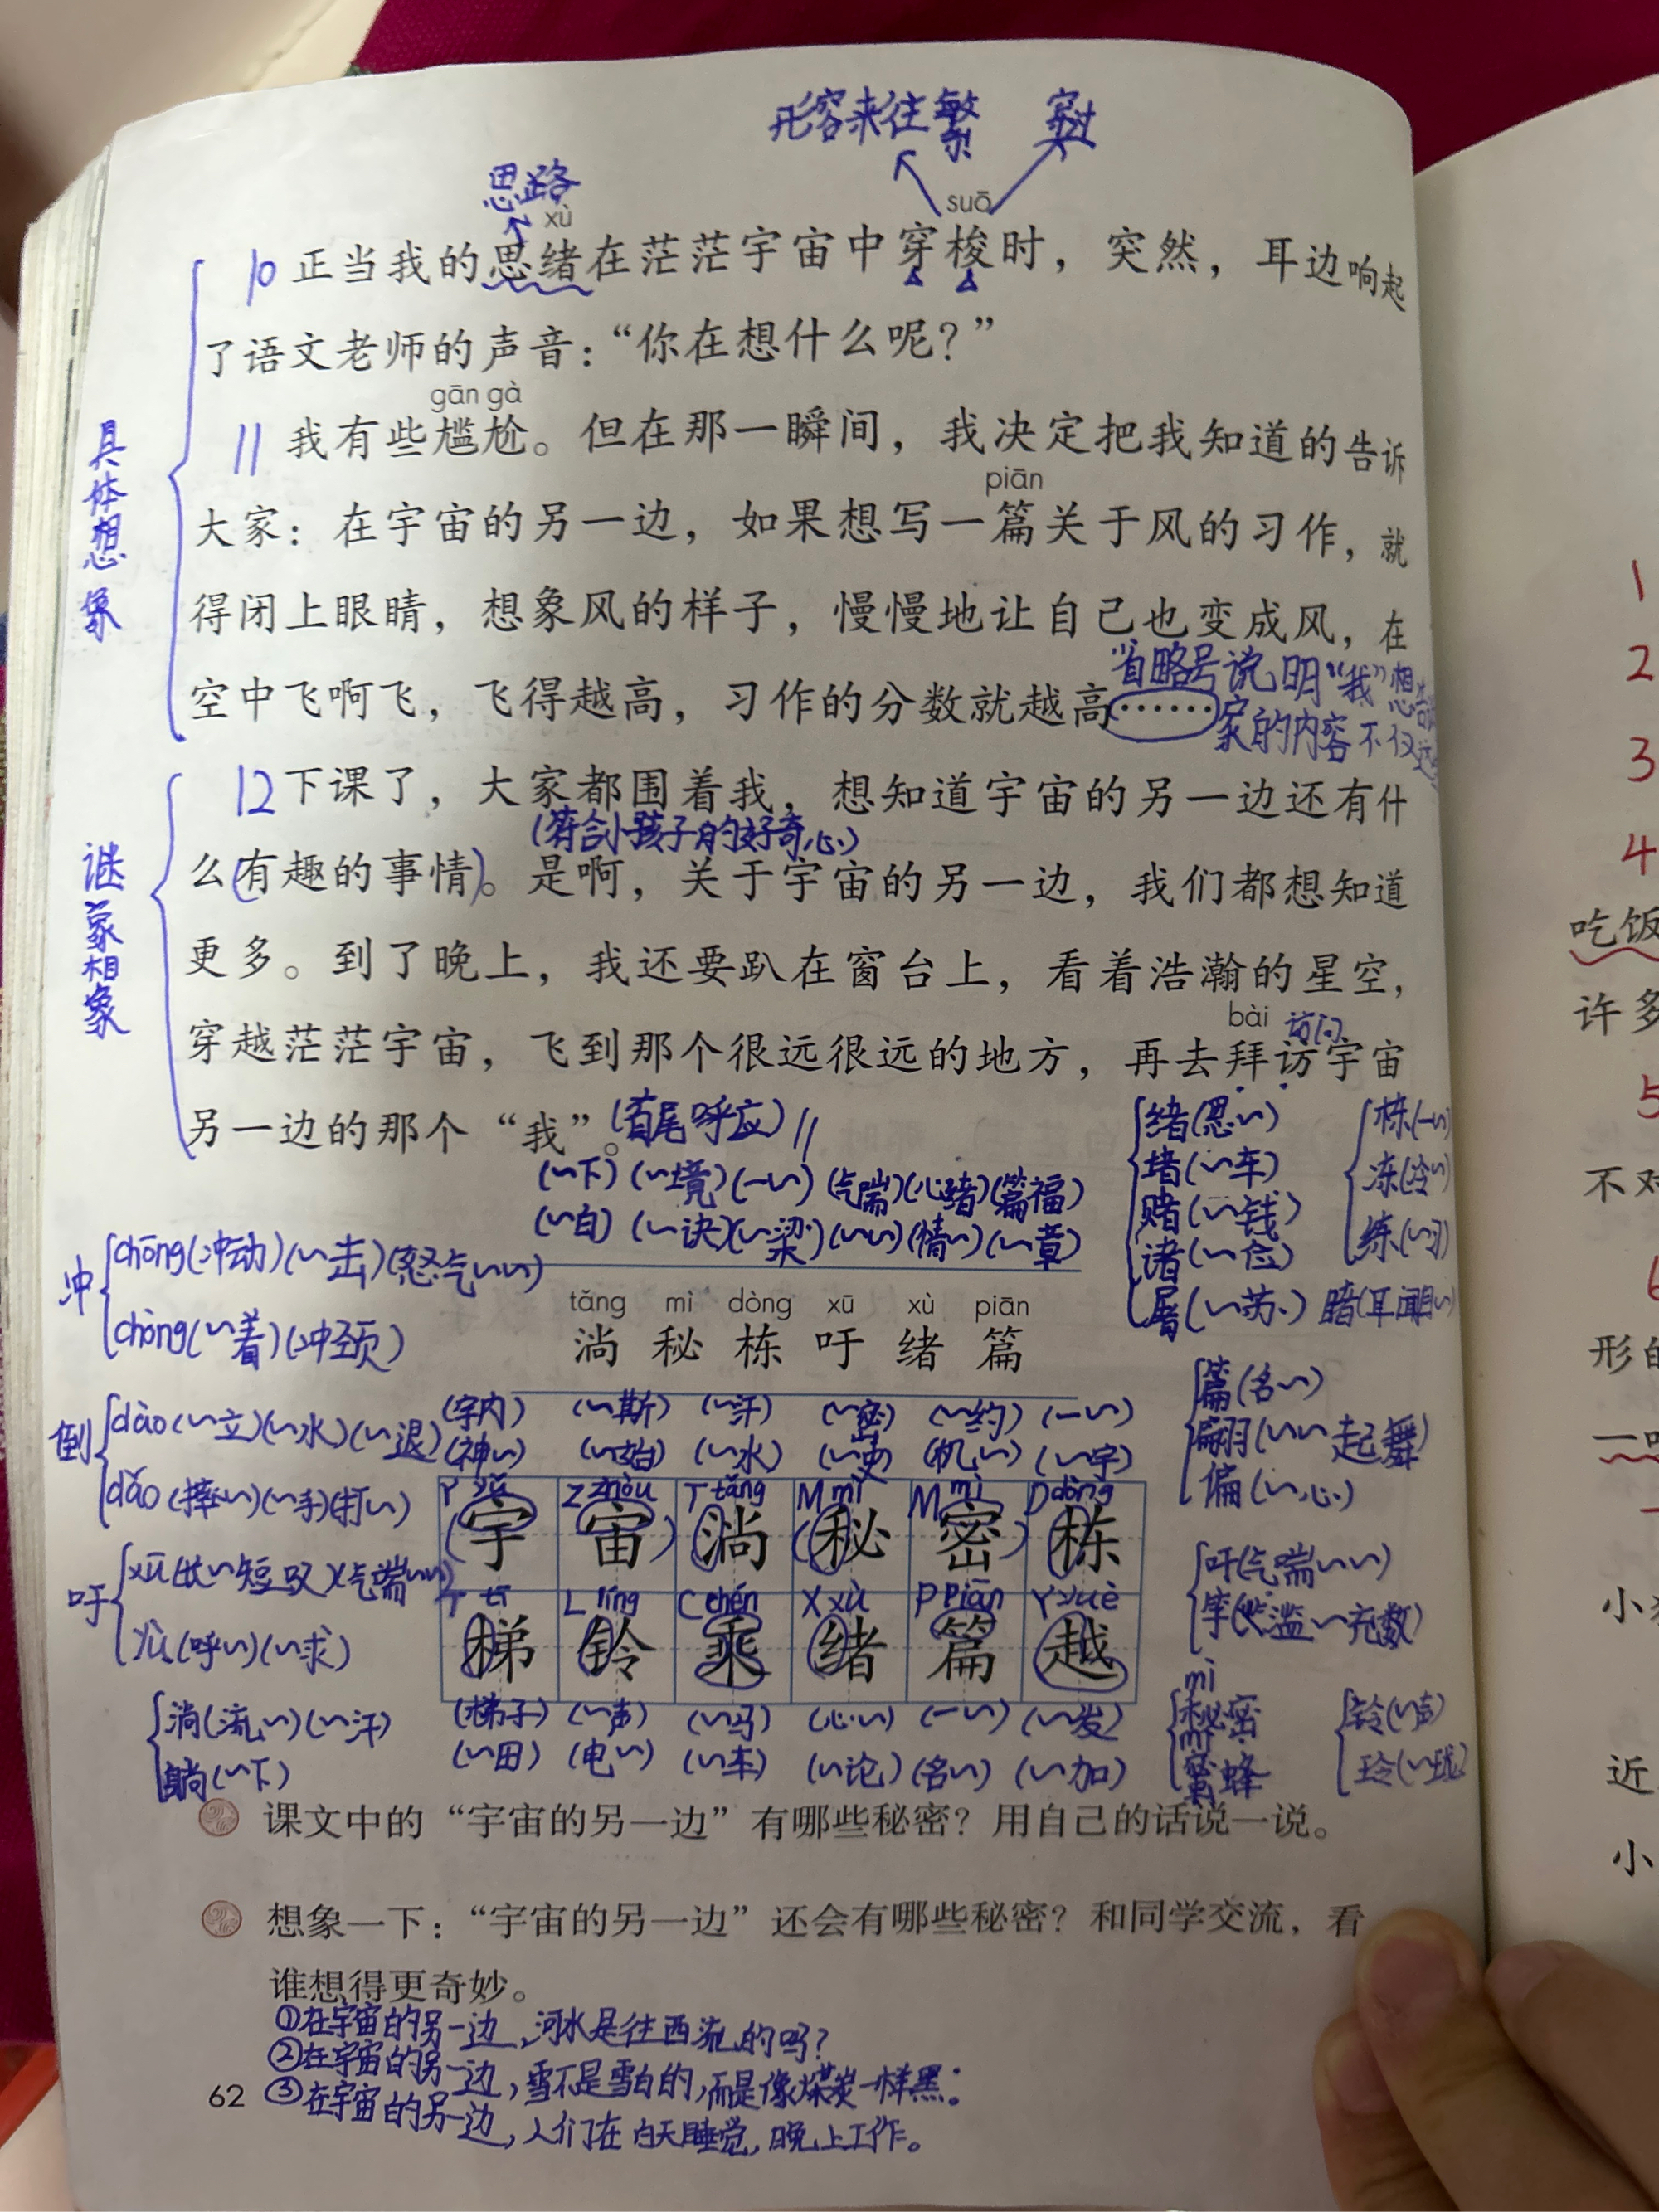 形容来往繁 穿过
思路
xù suō
10 正当我的思绪在茫茫宇宙中穿梭时，突然，耳边响起
了语文老师的声音：“你在想什么呢？”
gān gà
11 我有些尴尬。但在那一瞬间，我决定把我知道的告诉
piān
大家：在宇宙的另一边，如果想写一篇关于风的习作，就
得闭上眼睛，想象风的样子，慢慢地让自己也变成风，在
空中飞啊飞，飞得越高，习作的分数就越高……
省略号说明“我”想告
家的内容不仅
具体想象
12 下课了，大家都围着我，想知道宇宙的另一边还有什
(符合小孩子的好奇心)
么(有趣的事情)。是啊，关于宇宙的另一边，我们都想知道
更多。到了晚上，我还要趴在窗台上，看着浩瀚的星空，
bài 访问
穿越茫茫宇宙，飞到那个很远很远的地方，再去拜访宇宙
另一边的那个“我”。(首尾呼应)∥
继象想象
(~下) (~境) (一~) (气喘) (心绪) (篇福)
(~白) (~诀) (~梁) (~~) (情~) (~章)
绪(思~)
堵(~车)
赌(~钱)
诸(~位)
屠(~苏) 睹(耳闻目~)
栋(一~)
冻(冷~)
练(~习)
冲
chōng(冲动)(~击)(怒气~~)
chòng(~着)(冲颈)
tǎng mì dòng xū xù piān
淌 秘 栋 吁 绪 篇
倒
dào(~立)(~水)(~退)
dǎo(摔~)(~手)(打~)
吁
xū(长~短叹)(气喘~~)
yù(呼~)(~求)
淌(流~)(~汗)
躺(~下)
(宇内) (~斯) (~汗) (~密) (~约) (一~)
(神~) (~始) (~水) (~史) (机~) (~宇)
Y yǔ Z zhòu T tǎng M mì M mì D dòng
(宇 宙) 淌 (秘 密) 栋
T tī L líng C chéng X xù P piān Y yuè
梯 铃 乘 绪 篇 越
(梯子) (~声) (~马) (心~) (一~) (~发)
(~田) (电~) (~车) (~论) (名~) (~加)
篇(名~)
翩(~~起舞)
偏(~心)
吁(气喘~~)
竽(滥~充数)
mì
秘密
蜜蜂
铃(~声)
玲(~珑)
课文中的“宇宙的另一边”有哪些秘密？用自己的话说一说。
想象一下：“宇宙的另一边”还会有哪些秘密？和同学交流，看
谁想得更奇妙。
①在宇宙的另一边，河水是往西流的吗？
②在宇宙的另一边，雪不是雪白的，而是像煤炭一样黑。
③在宇宙的另一边，人们在白天睡觉，晚上工作。
62
1
2
3
4
吃饭
许多
5
不对
6
形的
小
近
小